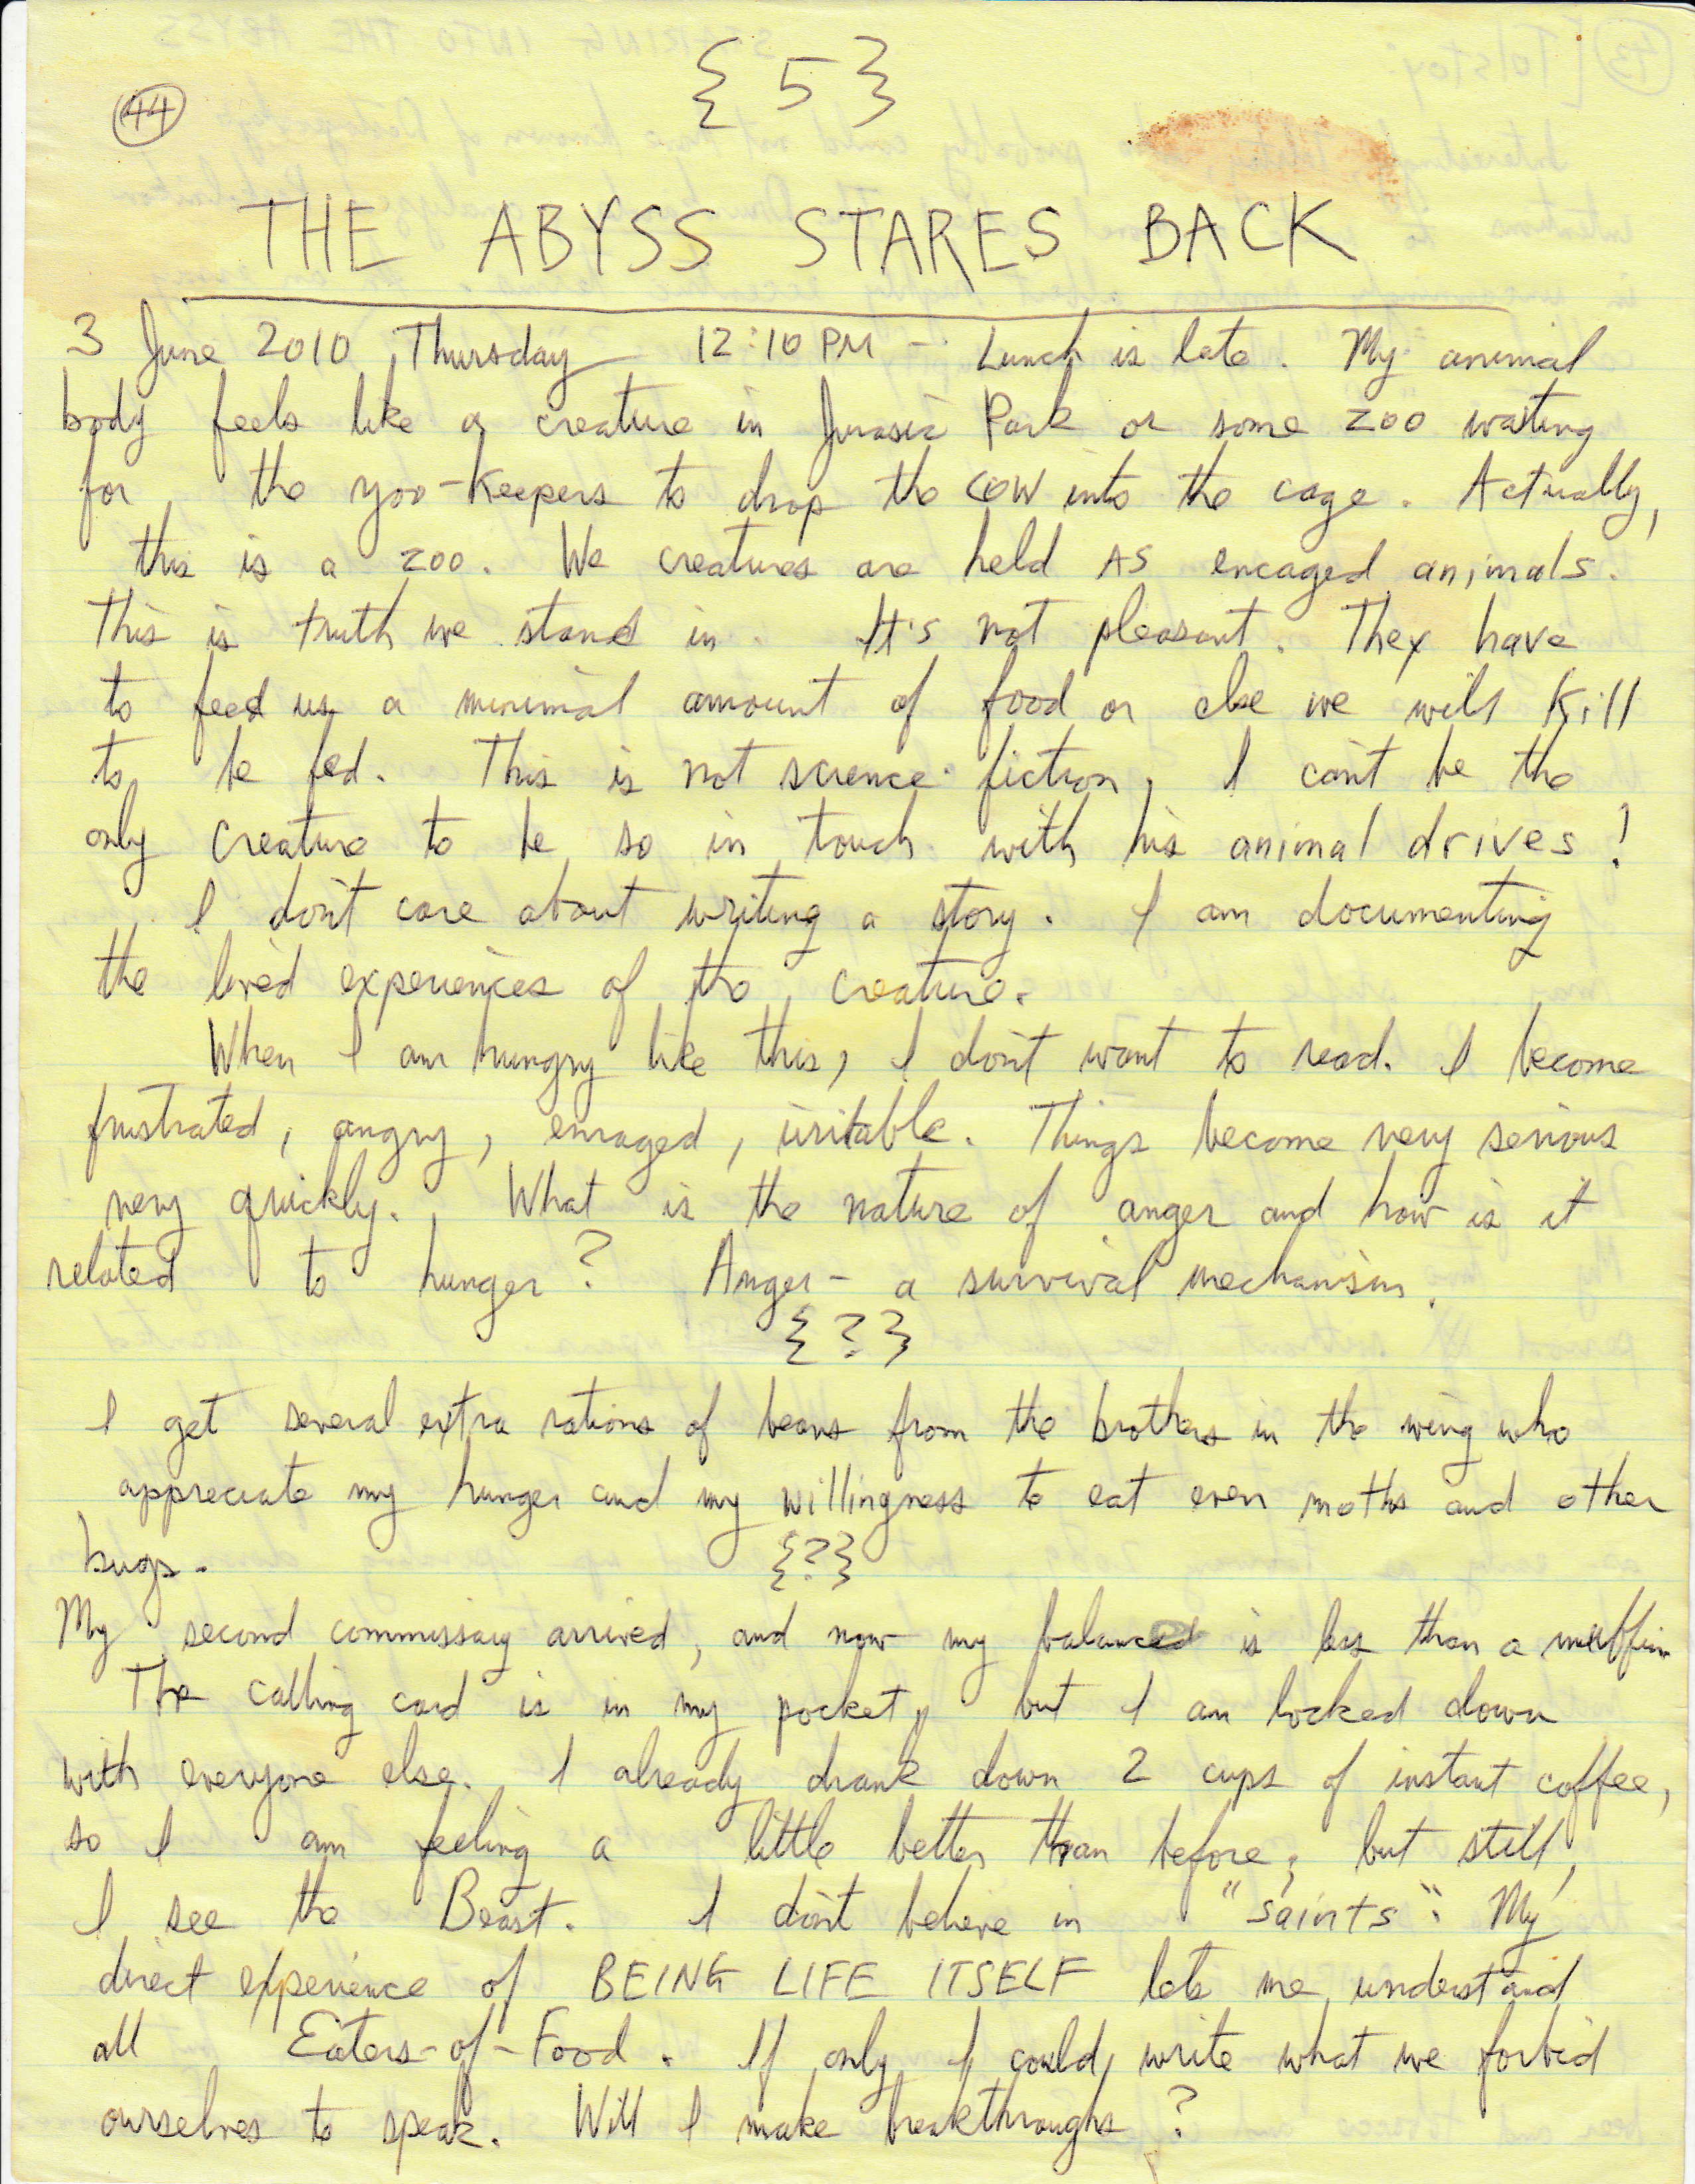 { 5 }
44
THE ABYSS STARES BACK
3 June 2010, Thursday 12:10 PM - Lunch is late. My animal
body feels like a creature in Jurasic Park or some zoo waiting
for the zoo-keepers to drop the cow into the cage. Actually,
this is a zoo. We creatures are held AS encaged animals.
This is truth we stand in. It's not pleasant. They have
to feed us a minimal amount of food or else we will kill
to be fed. This is not science-fiction, I can't be the
only creature to be so in touch with his animal drives!
I don't care about writing a story. I am documenting
the lived experiences of the creature.
When I am hungry like this, I don't want to read. I become
frustrated, angry, enraged, irritable. Things become very serious
very quickly. What is the nature of anger and how is it
related to hunger? Anger - a survival mechanism.
{ ? }
I get several extra rations of beans from the brothers in the wing who
appreciate my hunger and my willingness to eat even moths and other
bugs.
{?}
My second commissary arrived, and now my balance is less than a muffin
The calling card is in my pocket, but I am locked down
with everyone else. I already drank down 2 cups of instant coffee,
so I am feeling a little better than before; but still,
I see the Beast. I don't believe in "saints". My
direct experience of BEING LIFE ITSELF lets me understand
all Eaters-of-Food. If only I could write what we forbid
ourselves to speak. Will I make breakthroughs?